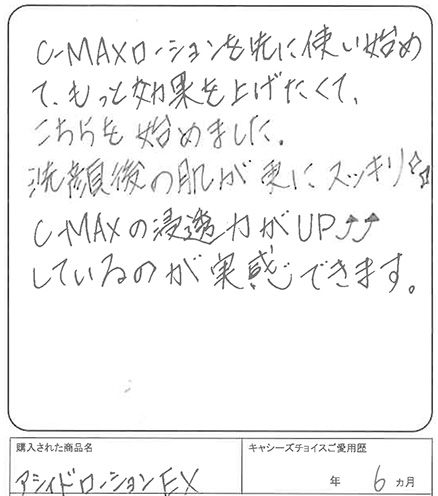 C-MAXローションを先に使い始め
て、もっと効果を上げたくて、
こちらを始めました。
洗顔後の肌が更にスッキリ☆☆
C-MAXの浸透力がUP⤴⤴
しているのが実感できます。
購入された商品名
キャシーズチョイスご愛用歴
アシィドローションEX
年 6 ヵ月